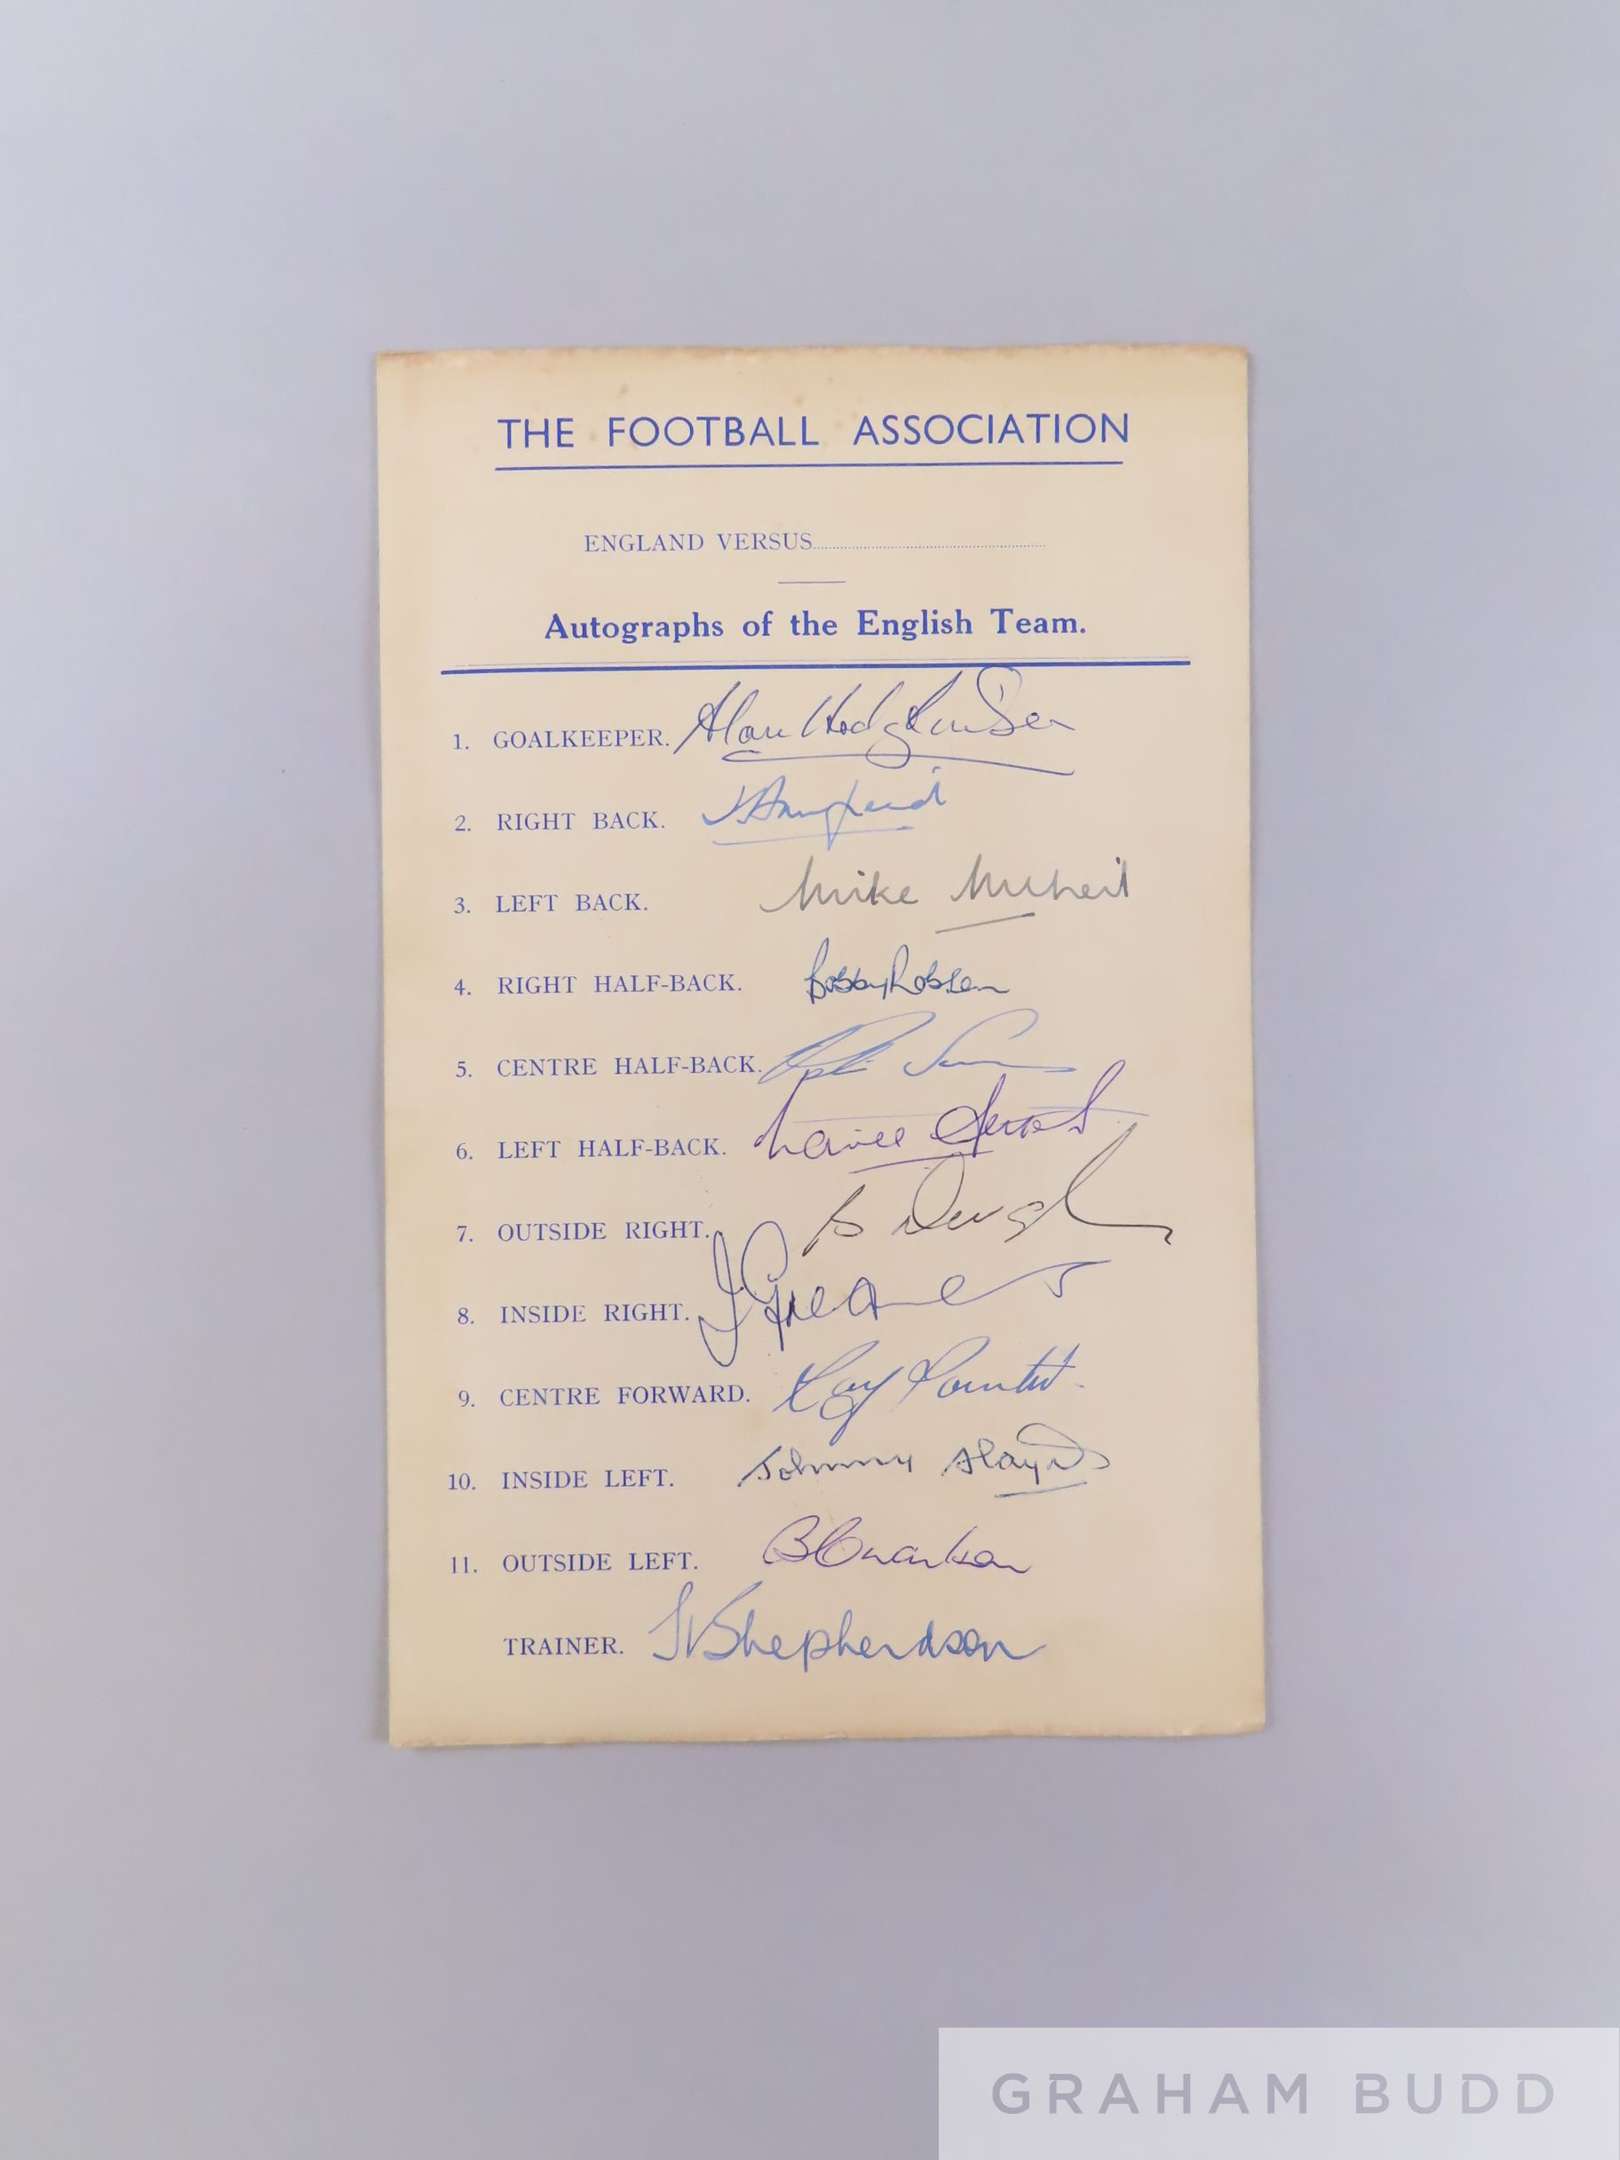 THE FOOTBALL ASSOCIATION
ENGLAND VERSUS
Autographs of the English Team.
1. GOALKEEPER. Alan Hodgkinson
2. RIGHT BACK. J Armfield
3. LEFT BACK. Mike McNeil
4. RIGHT HALF-BACK. Bobby Robson
5. CENTRE HALF-BACK.
6. LEFT HALF-BACK.
7. OUTSIDE RIGHT. B
8. INSIDE RIGHT. J Greaves
9. CENTRE FORWARD. Ray Pointer
10. INSIDE LEFT. Johnny Haynes
11. OUTSIDE LEFT. B Charlton
TRAINER. Shepherdson
GRAHAM BUDD